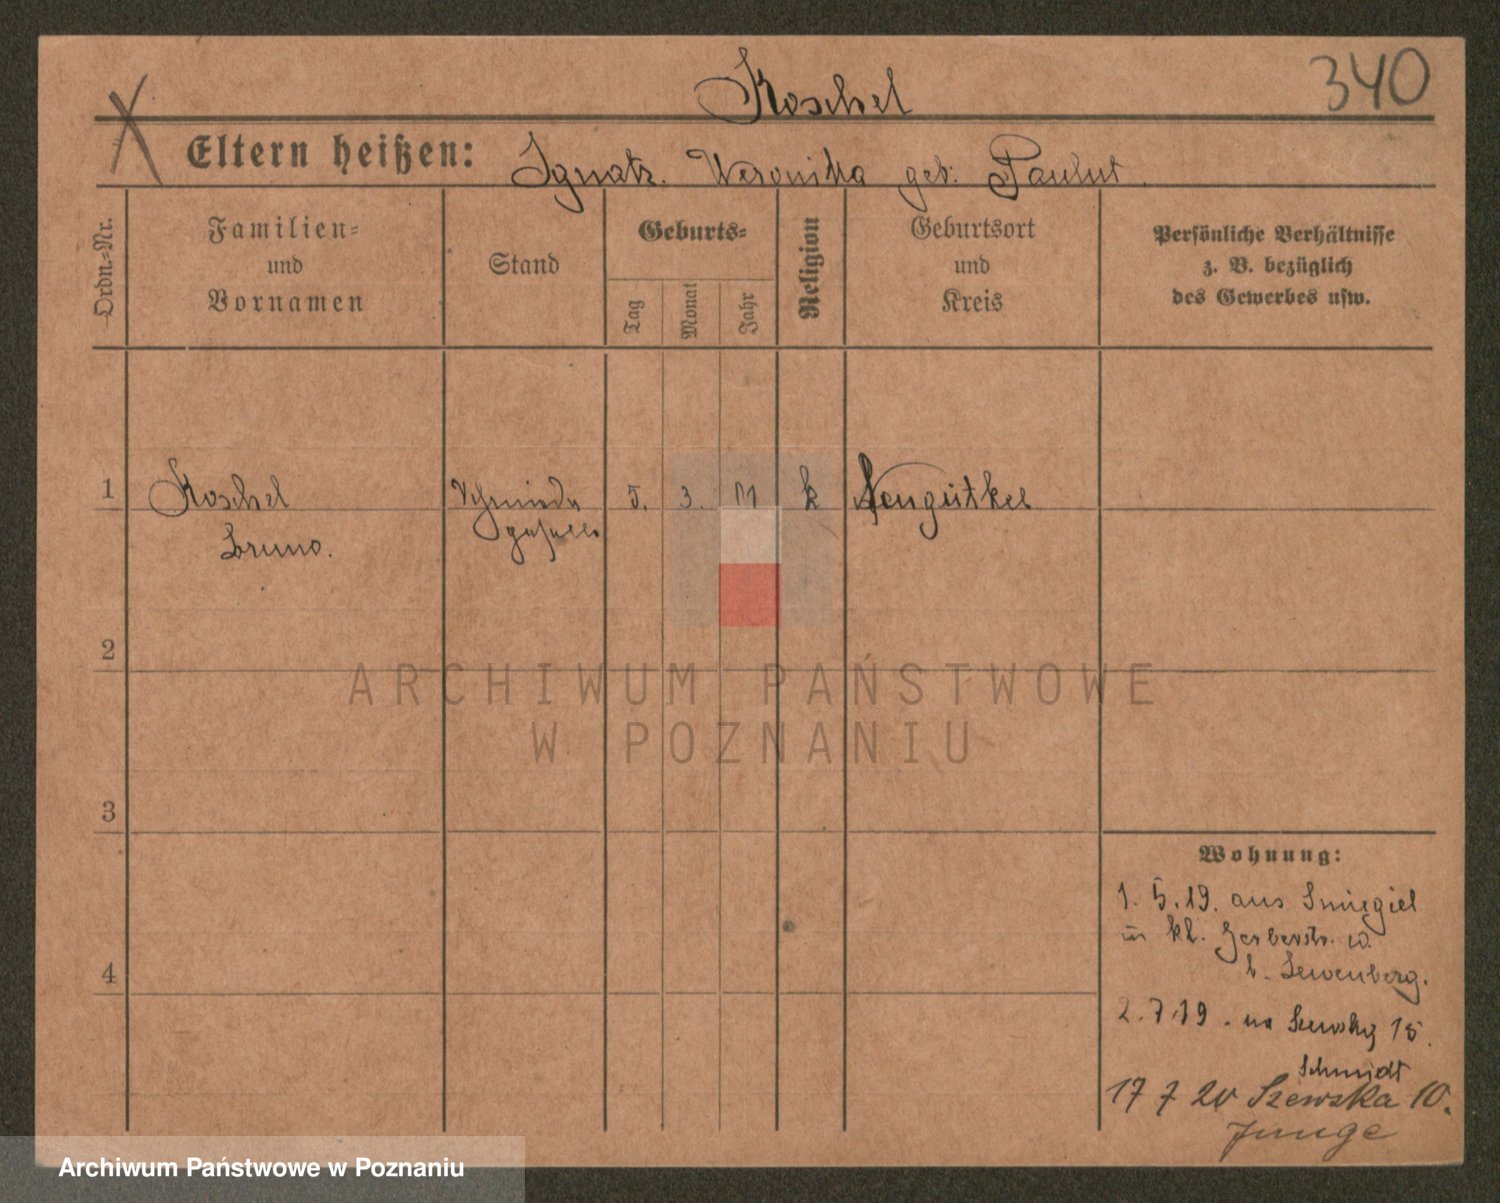 Koschel
340
Eltern heißen: Ignatz. Weronika geb. Paulut.
Ordn.-Nr.
Familien-
und
Vornamen
Stand
Geburts-
Tag
Monat
Jahr
Religion
Geburtsort
und
Kreis
Persönliche Verhältnisse
z. B. bezüglich
des Gewerbes usw.
1 Koschel 5. 3. k
Bruno.
2
ARCHIWUM PAŃSTWOWE
W POZNANIU
3
4
Wohnung:
1. 5. 19. aus Smiegiel
kl. Gerberstr.
b. Lewenberg.
2.7.19. na Szewską 15.
Schmidt
17 7 20 Szewska 10.
Junge
Archiwum Państwowe w Poznaniu